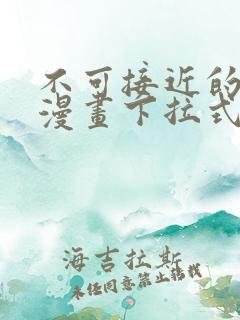 不可接近的
漫畫下拉式
海吉拉斯
未经同意禁止转载